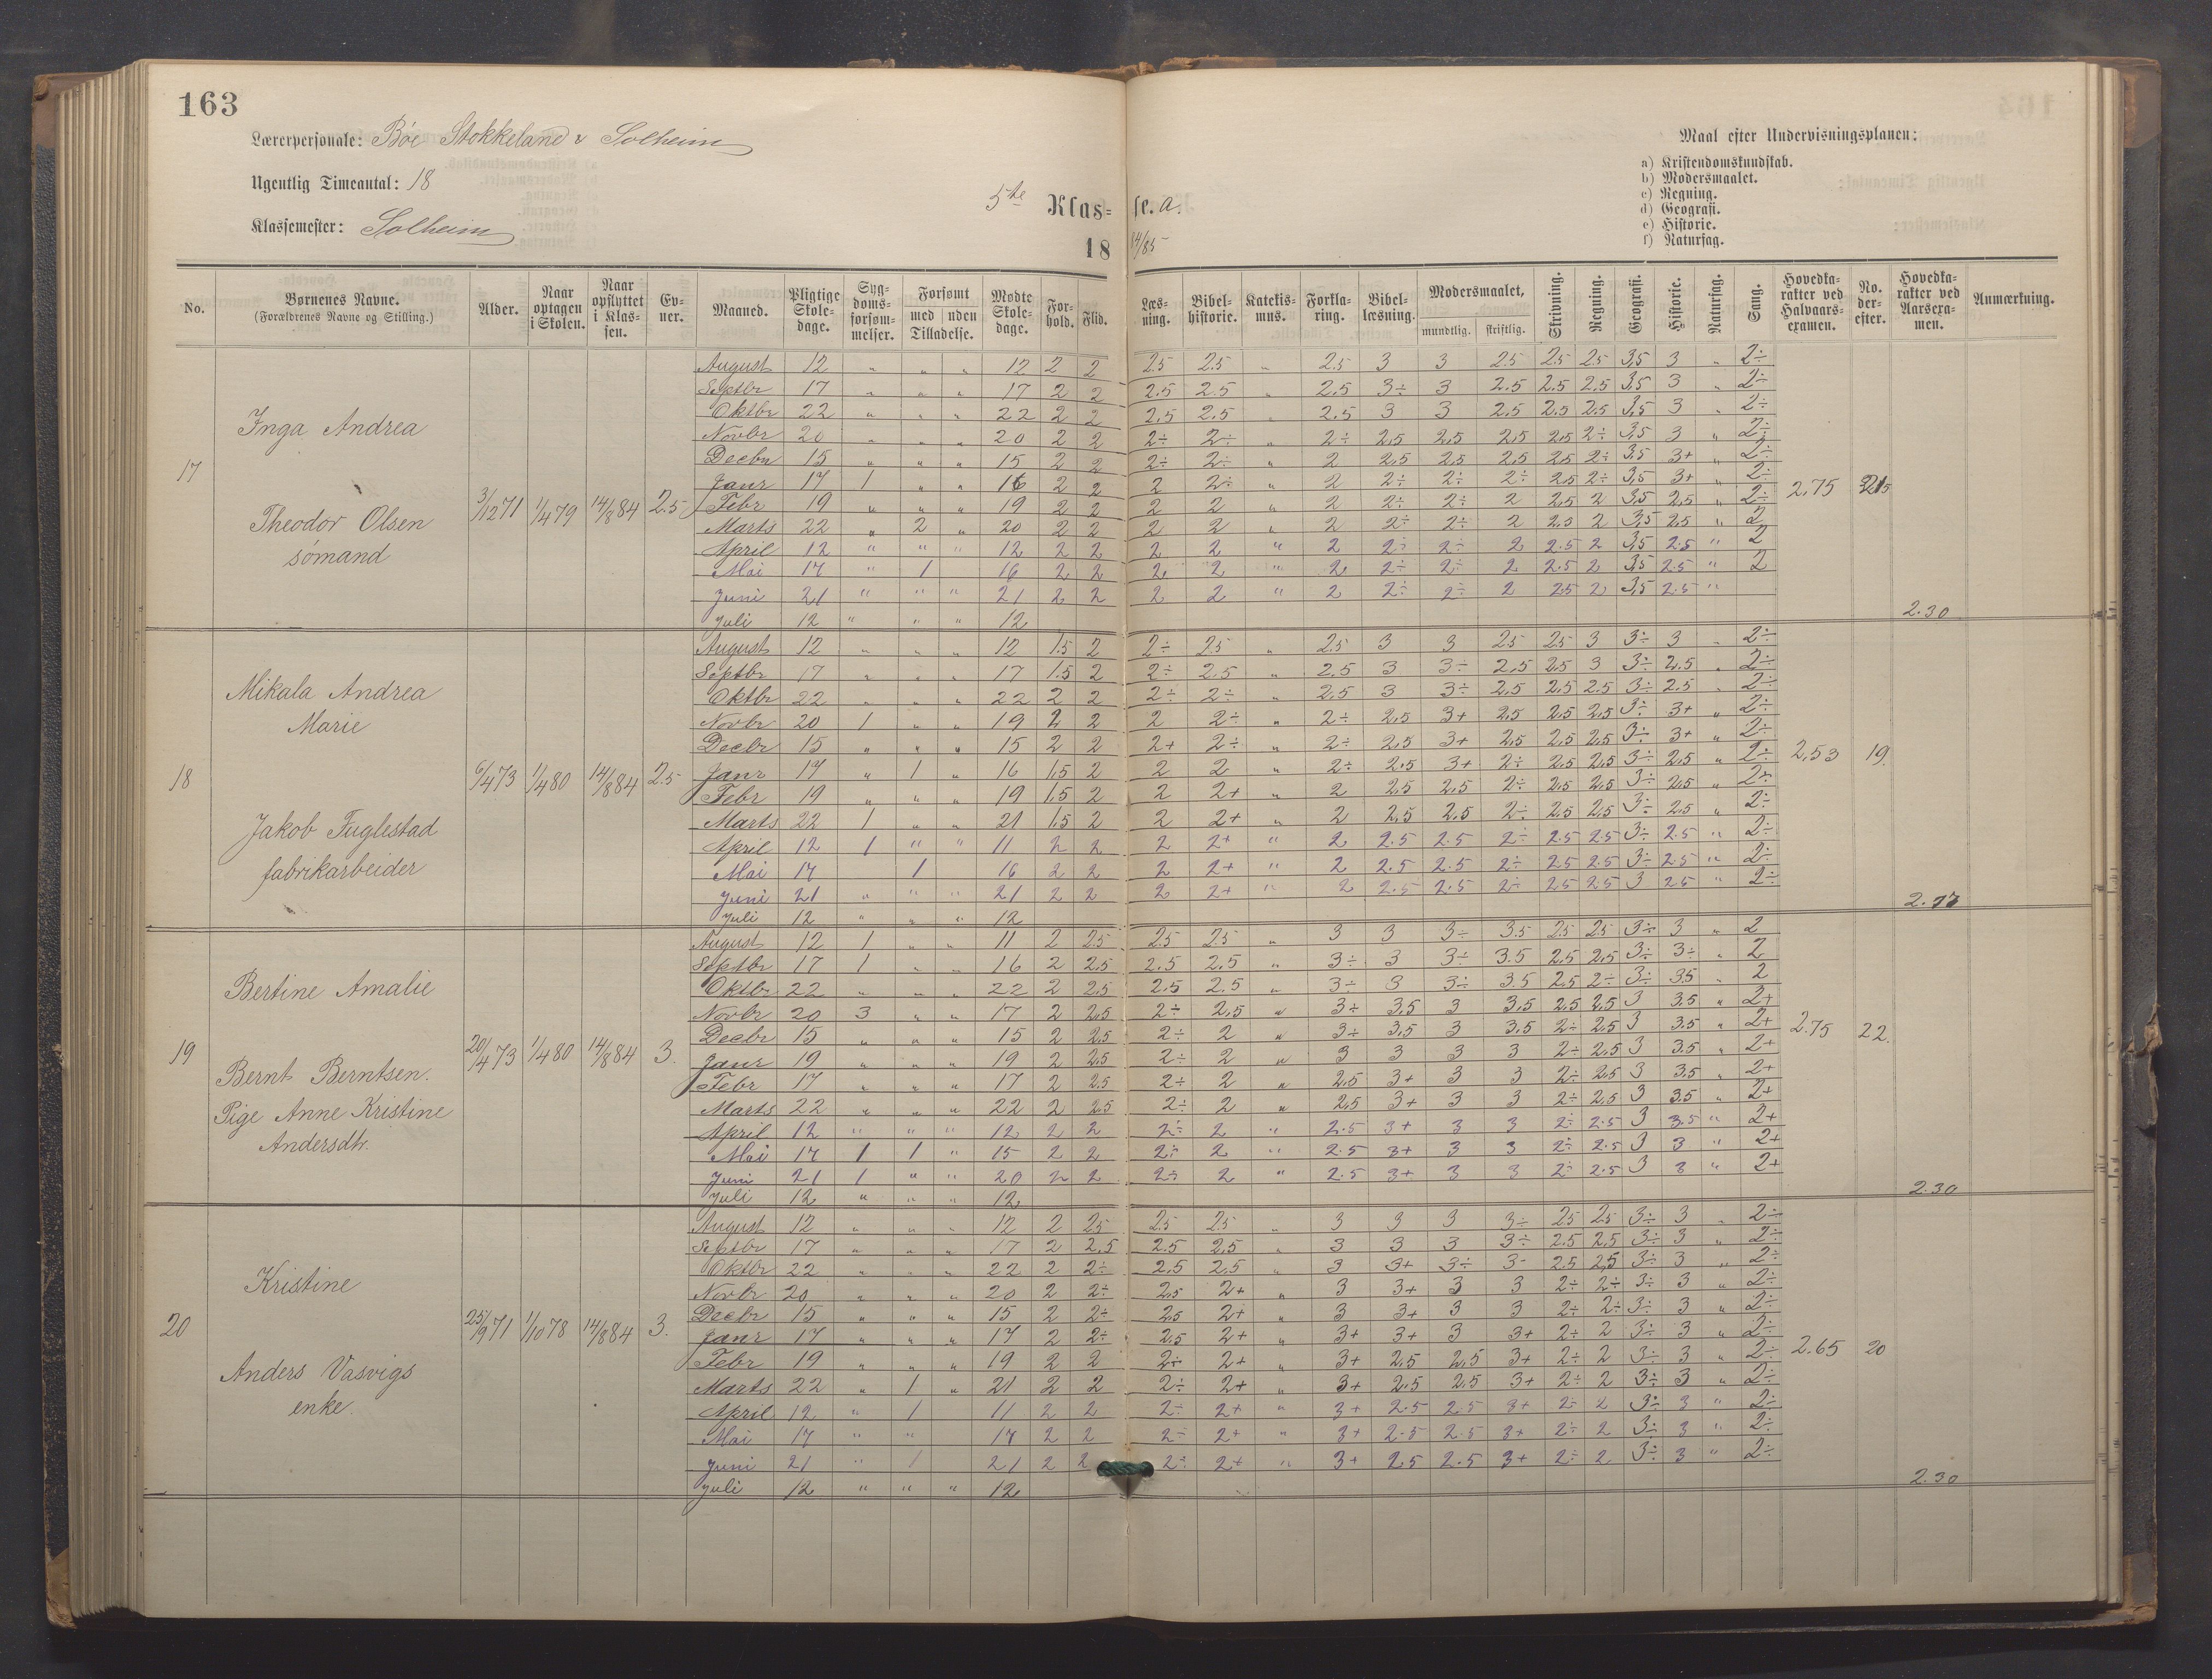 163
Lærerpersonale: Bóe Stokkeland & Solheim
Ugentlig Timeantal: 18
Klassemester: Solheim
5te Klas= se. a.
18 84/85
Maal efter Undervisningsplanen:
a) Kristendomskundskab.
b) Modersmaalet.
c) Regning.
d) Geografi.
e) Historie.
f) Naturfag.
No. | Børnenes Navne. (Forældrenes Navne og Stilling.) | Alder. | Naar optagen i Skolen. | Naar opflyttet i Klas-sen. | Ev-ner. | Maaned. | Pligtige Skole-dage. | Syg-doms-forsøm-melser. | Forsømt med uden Tilladelse. | Mødte Skole-dage. | For-hold. | Flid. | Læs-ning. | Bibel-historie. | Katekis-mus. | Forkla-ring. | Bibel-læsning. | Modersmaalet, mundtlig. skriftlig. | Skrivning. | Regning. | Geografi. | Historie. | Naturfag. | Sang. | Hovedka-rakter ved Halvaars-examen. | No. der-efter. | Hovedka-rakter ved Aarsexa-men. | Anmærkning.
17 Inga Andrea
Theodor Olsen
sømand
3/12 71 1/4 79 14/8 84 2.5
August 12 " " " 12 2 2 2.5 2.5 " 2.5 3 3 2.5 2.5 2.5 3,5 3 " 2÷
Septbr 17 " " " 17 2 2 2.5 2.5 " 2.5 3÷ 3 2.5 2.5 2.5 3,5 3 " 2÷
Oktbr 22 " " " 22 2 2 2.5 2.5 " 2.5 3 3 2.5 2.5 2.5 3,5 3 " 2÷
Novbr 20 " " " 20 2 2 2÷ 2÷ " 2÷ 2,5 2,5 2,5 2,5 2÷ 3,5 3 " 2÷
Decbr 15 " " " 15 2 2 2÷ 2÷ " 2 2,5 2,5 2,5 2,5 2÷ 3,5 3+ " 2÷
Janr 17 1 " " 16 2 2 2 2÷ " 2 2÷ 2÷ 2÷ 2,5 2÷ 3,5 3+ " 2÷
2,75
Febr 19 " " " 19 2 2 2 2 " 2 2÷ 2÷ 2 2,5 2 3,5 2,5 " 2÷
Marts 22 " 2 " 20 2 2 2 2 " 2 2÷ 2÷ 2 2,5 2 3,5 2,5 " 2
April 12 " " " 12 2 2 2 2 " 2 2÷ 2÷ 2 2.5 2 3,5 2.5 " 2
Mai 17 " 1 16 2 2 2 2 " 2 2÷ 2÷ 2 2.5 2 3,5 2.5 " 2
Juni 21 " " " 21 2 2 2 2 " 2 2÷ 2÷ 2 2.5 2 3,5 2.5 "
Juli 12 " " " 12
2.30
18 Mikala Andrea
Marie
Jakob Fuglestad
fabrikarbeider
6/4 73 1/4 80 14/8 84 2.5
August 12 " " " 12 1.5 2 2÷ 2.5 " 2.5 3 3 2.5 2.5 3 3÷ 3 " 2÷
Septbr 17 " " " 17 1.5 2 2÷ 2.5 " 2.5 3 3÷ 2.5 2.5 3 3÷ 2.5 " 2÷
Oktbr 22 " " " 22 2 2 2÷ 2÷ " 2.5 3 3÷ 2.5 2.5 2.5 3÷ 2.5 " 2÷
Novbr 20 1 " " 19 2 2 2 2÷ " 2÷ 2,5 3+ 2,5 2,5 2,5 3÷ 3+ " 2÷
Decbr 15 " " " 15 2 2 2+ 2÷ " 2÷ 2,5 3+ 2,5 2,5 2,5 3÷ 3+ " 2÷
Janr 17 " 1 " 16 1,5 2 2 2 " 2÷ 2,5 3+ 2÷ 2,5 2,5 3÷ 2,5 " 2÷
2,53 19.
Febr 19 " " " 19 1,5 2 2 2+ " 2 2,5 2,5 2÷ 2,5 2,5 3÷ 2,5 " 2÷
Marts 22 1 " " 21 1,5 2 2 2+ " 2 2,5 2,5 2÷ 2,5 2,5 3÷ 2,5 " 2÷
April 12 1 " " 11 2 2 2 2+ " 2 2.5 2.5 2÷ 2.5 2.5 3÷ 2.5 " 2÷
Mai 17 1 16 2 2 2 2+ " 2 2.5 2.5 2÷ 2.5 2.5 3÷ 2.5 " 2÷
Juni 21 " " " 21 2 2 2 2+ " 2 2.5 2.5 2÷ 2.5 2.5 3 2.5 " 2÷
Juli 12 " " " 12
19 Bertine Amalie
Bernt Berntsen.
Pige Anne Kristine
Andersdtr.
20/4 73 1/4 80 14/8 84 3.
August 12 1 " " 11 2 2.5 2.5 2.5 " 3 3 3÷ 3.5 2.5 2.5 3÷ 3 " 2
Septbr 17 1 " " 16 2 2.5 2.5 2.5 " 3÷ 3 3÷ 3.5 2.5 2.5 3÷ 3÷ " 2
Oktbr 22 " " " 22 2 2.5 2.5 2.5 " 3÷ 3 3÷ 3.5 2.5 2÷ 3÷ 3.5 " 2
Novbr 20 3 " " 17 2 2,5 2÷ 2,5 " 3÷ 3,5 3 3,5 2,5 2,5 3 3.5 " 2+
Decbr 15 " " " 15 2 2.5 2÷ 2 " 3÷ 3,5 3 3,5 2÷ 2,5 3 3.5 " 2+
2.75 22.
Janr 19 " " " 19 2 2.5 2÷ 2 " 3 3 3 3 2÷ 2.5 3 3.5 " 2+
Febr 17 " " " 17 2 2.5 2÷ 2 " 2,5 3+ 3 3 2÷ 2,5 3 3,5 " 2+
Marts 22 " " " 22 2 2.5 2÷ 2 " 2,5 3+ 3 3 2÷ 2,5 3 3.5 " 2+
April 12 " " " 12 2 2 2÷ 2 " 2.5 3+ 3 3 2÷ 2.5 3 3.5 " 2+
Mai 17 1 1 " 15 2 2 2÷ 2 " 2.5 3+ 3 3 2÷ 2.5 3 3 " 2+
Juni 21 1 " " 20 2 2 2÷ 2 " 2.5 3+ 3 3 2÷ 2.5 3 3 " 2+
Juli 12 " " " 12
2.30
20 Kristine
Anders Vasvigs
enke.
25/9 71 1/10 78 14/8 84 3.
August 12 " " " 12 2 2.5 2.5 2.5 " 3 3 3 3÷ 2.5 2.5 3÷ 3 " 2÷
Septbr 17 " " " 17 2 2.5 2.5 2.5 " 3 3 3 3÷ 2.5 2.5 3÷ 3 " 2÷
Oktbr 22 " " " 22 2 2÷ 2.5 2.5 " 3 3+ 3÷ 3- 2.5 2,5 3÷ 3 " 2÷
Novbr 20 " " " 20 2 2÷ 2,5 2+ " 3 3+ 3 3 2÷ 2÷ 3÷ 3 " 2÷
Decbr 15 " " " 15 2 2÷ 2,5 2+ " 3 3+ 3 3 2÷ 2÷ 3÷ 3 " 2÷
Janr 17 " " " 17 2 2÷ 2,5 2+ " 3+ 3+ 3 3+ 2÷ 2 3÷ 3 " 2÷
2.65 20
Febr 19 " " " 19 2 2 2÷ 2+ " 3+ 2,5 2,5 3+ 2÷ 2 3÷ 3 " 2÷
Marts 22 " 1 " 21 2 2 2÷ 2+ " 3+ 2,5 2,5 3+ 2÷ 2 3÷ 3 " 2÷
April 12 " 1 11 2 2 2÷ 2+ " 3+ 2.5 2.5 3+ 2÷ 2 3÷ 3 " 2÷
Mai 17 " " 17 2 2 2÷ 2+ " 3+ 2.5 2.5 3+ 2÷ 2 3÷ 3 " 2÷
Juni 21 " 1 21 2 2 2÷ 2+ " 3+ 2.5 2.5 3+ 2÷ 2 3÷ 3 " 2÷
Juli 12 " " " 12
2.30